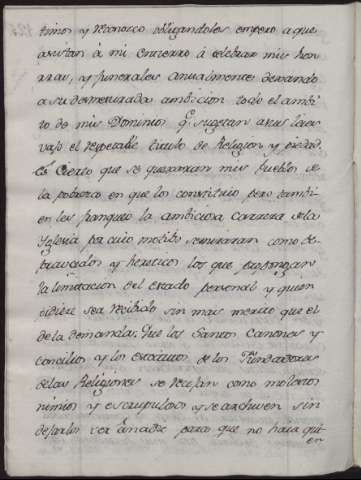 timos y Reconosco obligandoles empero a que
asistan à mi entierro à celebrar mis hon
rras, y funerales anualmente dexando
a su desmesurada ambicion todo el ambi
to de mis Dominios qe sugetan a sus Leies
vajo el respetable titulo de Religion y piedad.
Es Cierto que se quexaran mis Pueblos de
la pobreza en que los constituio pero tambi
en les franqueo la ambiciosa Carrera de la
Yglesia por cuio motibo se miraran como de
pravados y hereticos los que expongan
la limitacion del estado personal y quien
pidiere sea recibido sin mas merito que el
de la demanda. Que los Santos Canones y
Concilios y los estatutos de los Fundadores
de las Religiones se recusan como molestos
nimios y escrupulosos y se archiven sin
dejarlos ver à nadie para que no haia qui
en